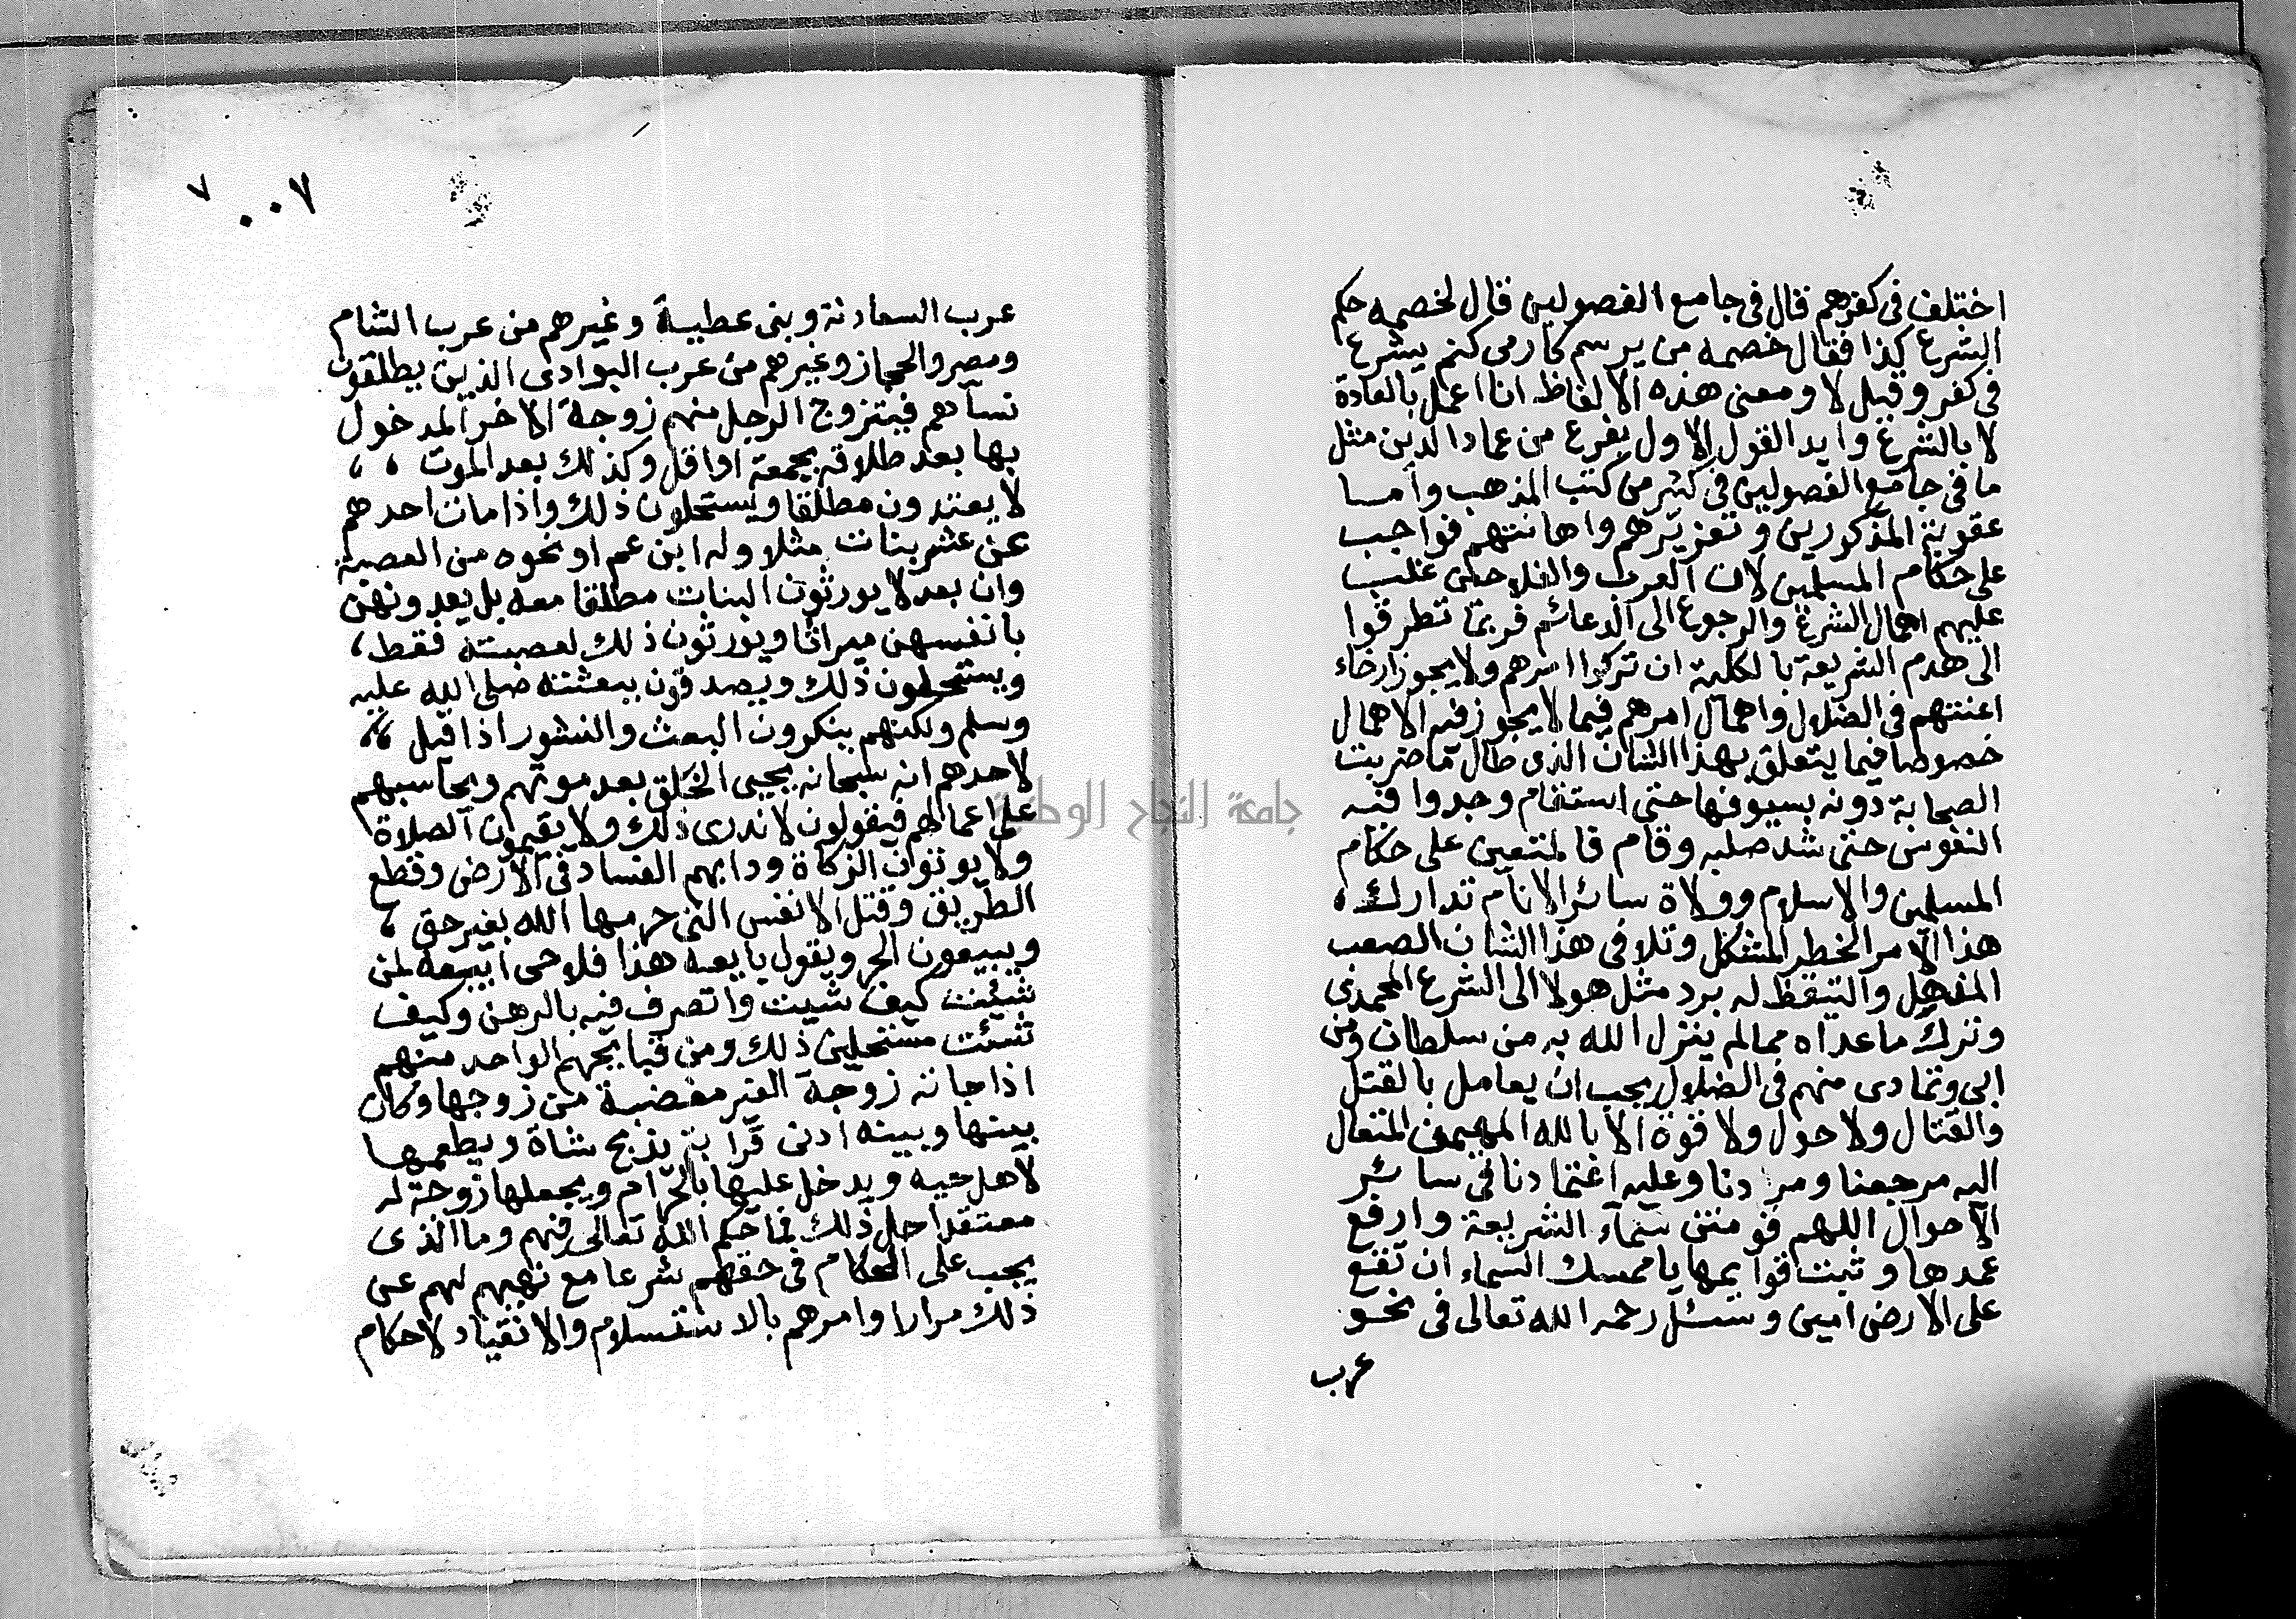 اختلف فى كفرهم قال فى جامع الفصولين قال لخصمه حكم
الشرع كذا فقال خصمه من برسم كارمى كنم بشرع
فى كفر وقيل لا ومعنى هذه الالفاظ انا اعمل بالعادة
لا بالشرع وايد القول الاول بفرع من عماد الدين مثل
ما فى جامع الفصولين فى كثير من كتب المذهب وأما
عقوبة المذكورين وتعزيرهم واهانتهم فواجب
على حكام المسلمين لان العرب والفلاحين غلب
عليهم اهمال الشرع والرجوع الى الدعائم فربما تطرقوا
الى هدم الشريعة بالكلية ان تركوا اسرهم ولا يجوز ارخاء
اعنتهم فى الضلال واهمال امرهم فيما لا يجوز فيه الاهمال
خصوصا فيما يتعلق بهذا الشان الذى طال ما ضربت
الصحابة دونه بسيوفها حتى استقام وجدوا فيه
النفوس حتى شد صلبه وقام فالمتعين على حكام
المسلمين والاسلام وولاة سائر الانام تدارك
هذا الامر الخطر المشكل وتلافى هذا الشان الصعب
المفهل والتيقظ له برد مثل هولا الى الشرع المحمدى
وترك ما عداه مما لم ينزل الله به من سلطان ومن
ابى وتمادى منهم فى الضلال يجب ان يعامل بالقتل
والقتال ولا حول ولا قوة الا بالله المهيمن المتعال
اليه مرجعنا ومردنا وعليه اعتمادنا فى سائر
الاحوال اللهم قو متن سماء الشريعة وارفع
عمدها وثبت قوايمها يا ممسك السماء ان تقع
على الارض امين وسئل رحمه الله تعالى فى نحو
عرب
٧ ٠٠٧
عرب السعادنة وبنى عطية وغيرهم من عرب الشام
ومصر والحجاز وغيرهم من عرب البوادى الذين يطلقون
نساءهم فيتزوج الرجل منهم زوجة الاخر المدخول
بها بعد طلاقه بجمعة او اقل وكذلك بعد الموت
لا يعتدون مطلقا ويستحلون ذلك واذا مات احدهم
عن عشر بنات مثلا وله ابن عم او نحوه من العصبة
وان بعد لا يورثون البنات مطلقا معه بل يعدونهن
بانفسهن ميراثا ويورثون ذلك لعصبته فقط
ويستحلون ذلك ويصدقون ببعثته صلى الله عليه
وسلم ولكنهم ينكرون البعث والنشور اذا قيل
لاحدهم انه سبحانه يحيى الخلق بعد موتهم ويحاسبهم
على اعمالهم فيقولون لا ندرى ذلك ولا يقيمون الصلاة
ولا يوتون الزكاة ودابهم الفساد فى الارض وقطع
الطريق وقتل الانفس التى حرمها الله بغير حق
ويبيعون الحر ويقول بايعه هذا فلاحى ابيعه لمن
شيئت كيف شيت واتصرف فيه بالرهن وكيف
شئت مستحلين ذلك ومن قبايحهم الواحد منهم
اذا جاءته زوجة الغير مغضبة من زوجها وكان
بينها وبينه ادنى قرابة يذبح شاة ويطعمها
لاهل حيه ويدخل عليها بالحرام ويجعلها زوجة له
معتقدا حل ذلك فما حكم الله تعالى فيهم وما الذى
يجب على الحكام فى حقهم شرعا مع نهيهم لهم عن
ذلك مرارا وامرهم بالاستسلام والانقياد لاحكام
جامعة النجاح الوطنية